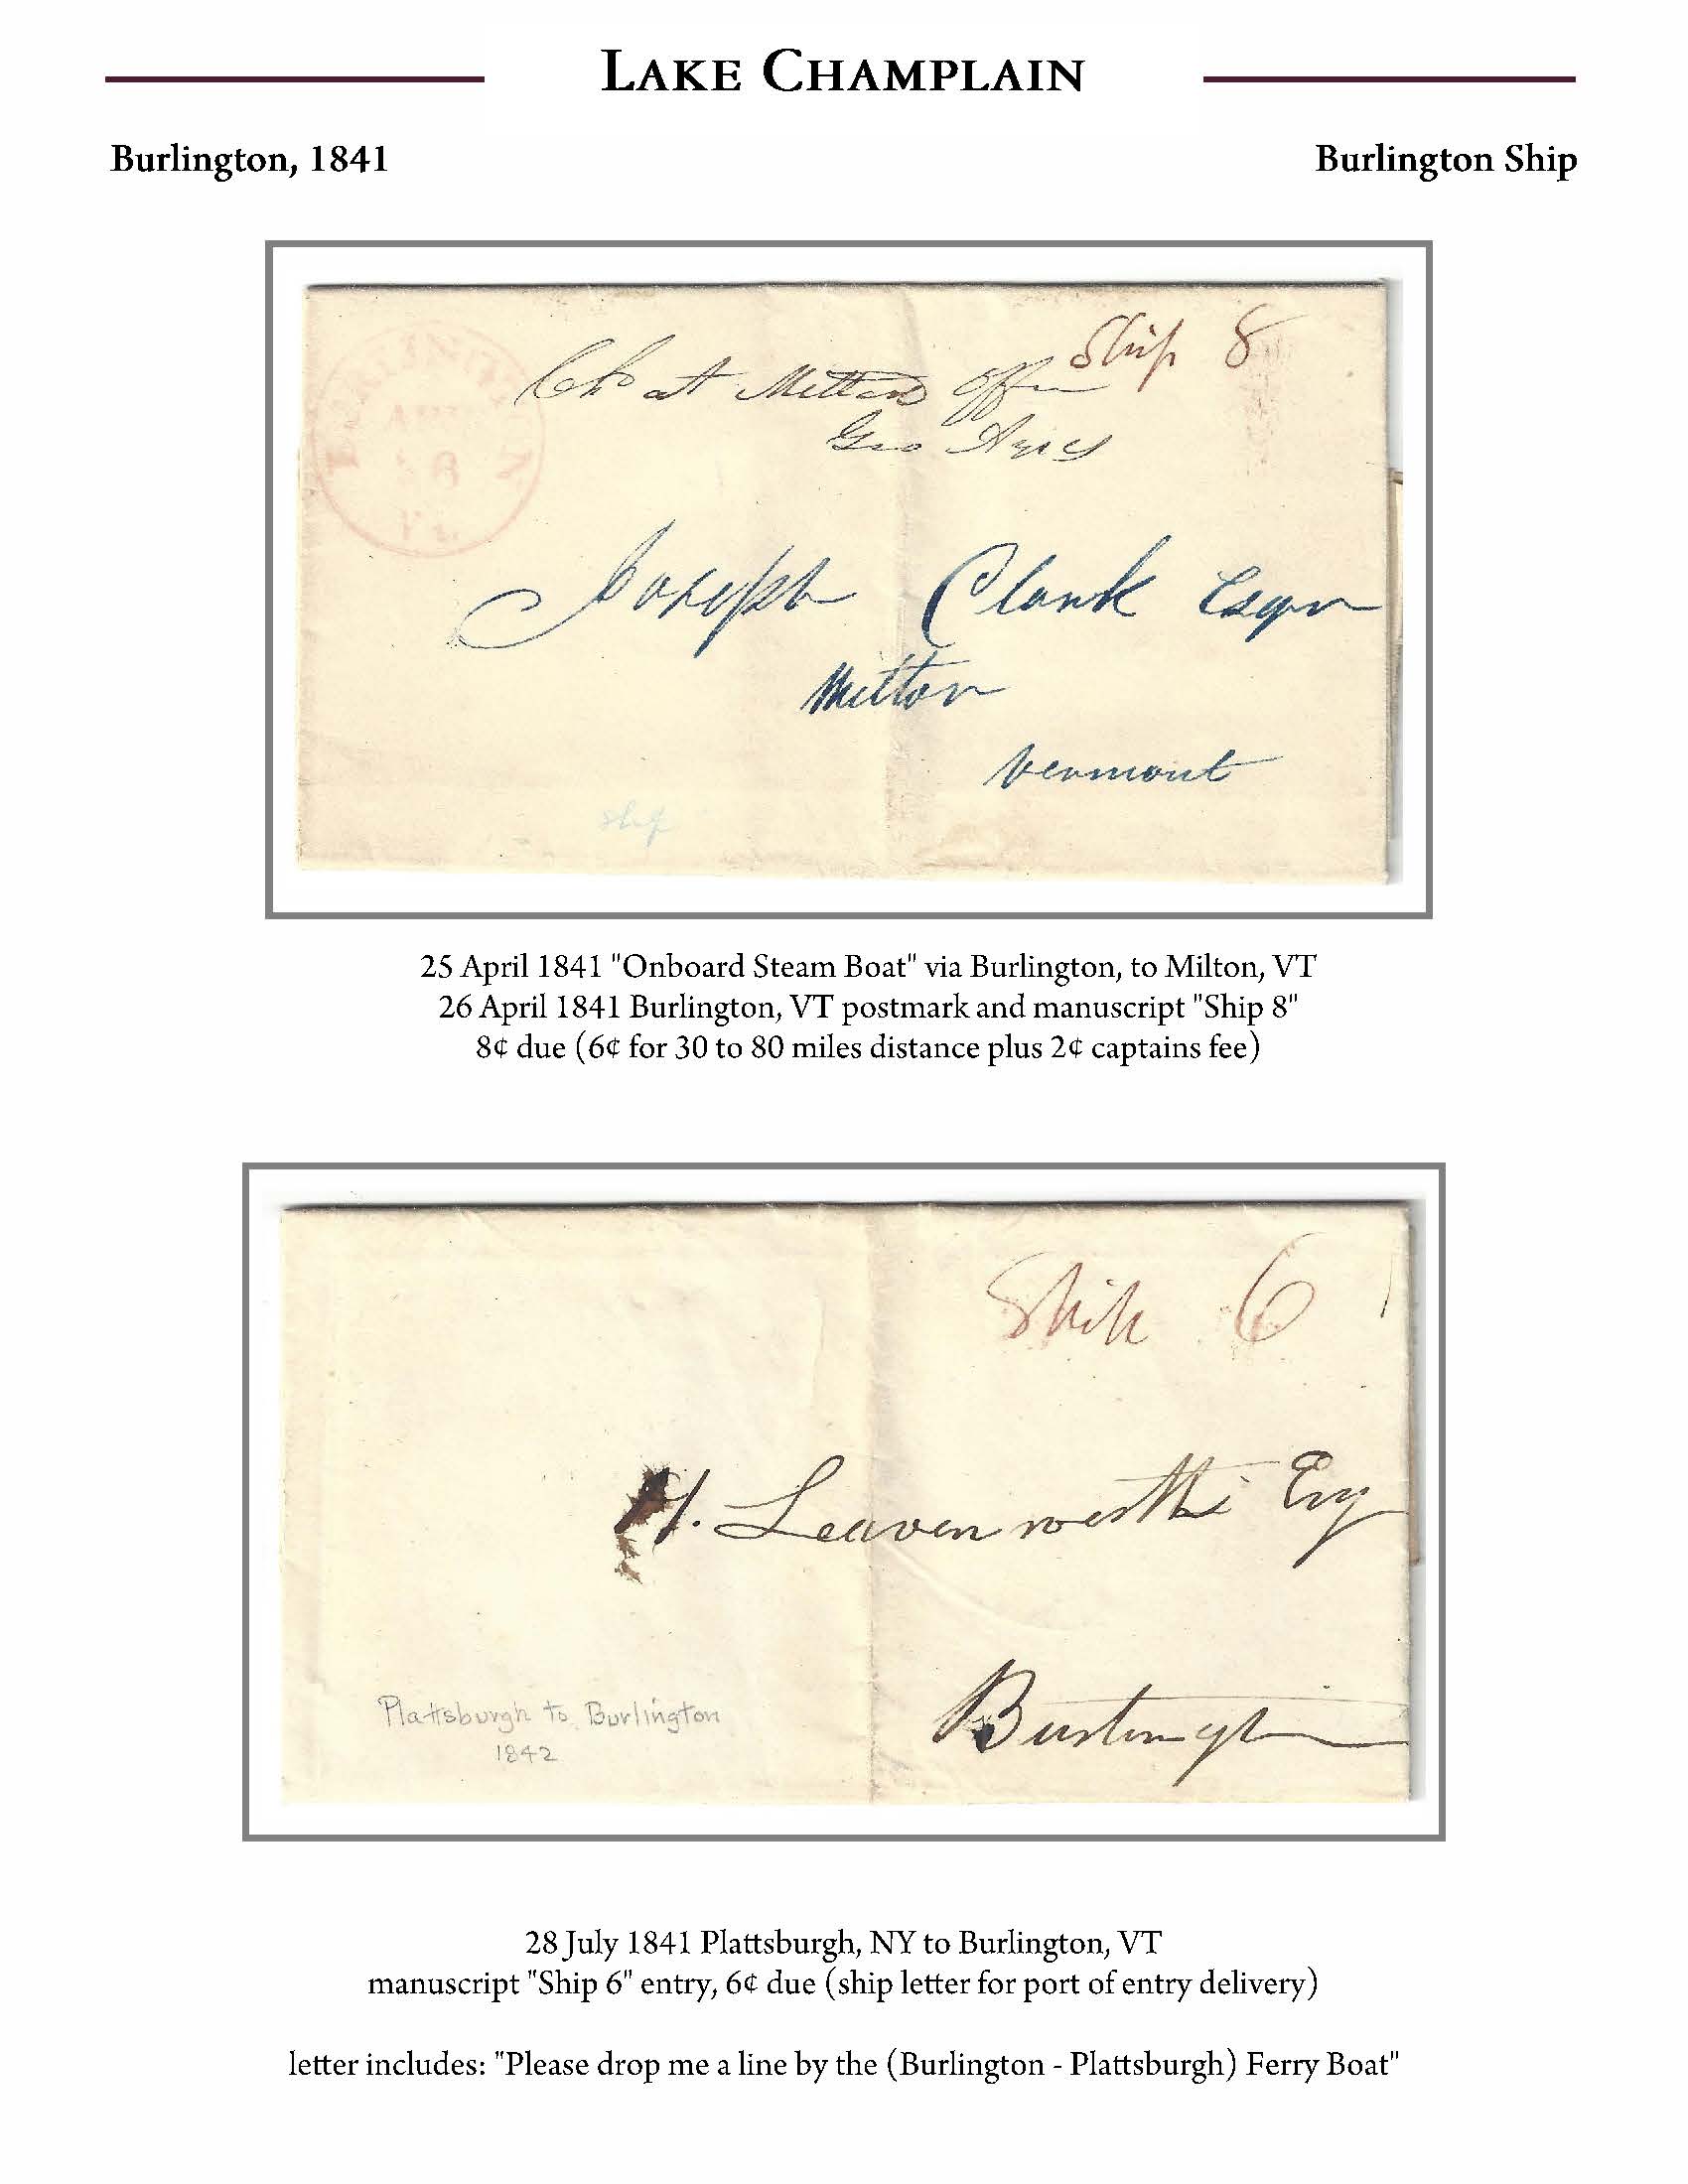 LAKE CHAMPLAIN
Burlington, 1841
Burlington Ship
Ship 8
Ch at Milton Office
Geo Ayres
BURLINGTON
APR
26
Vt.
Joseph Clark Esqr
Milton
Vermont
ship
25 April 1841 "Onboard Steam Boat" via Burlington, to Milton, VT
26 April 1841 Burlington, VT postmark and manuscript "Ship 8"
8¢ due (6¢ for 30 to 80 miles distance plus 2¢ captains fee)
Ship 6
H. Leavenworth Esq
Burlington
Plattsburgh to Burlington
1842
28 July 1841 Plattsburgh, NY to Burlington, VT
manuscript "Ship 6" entry, 6¢ due (ship letter for port of entry delivery)
letter includes: "Please drop me a line by the (Burlington - Plattsburgh) Ferry Boat"